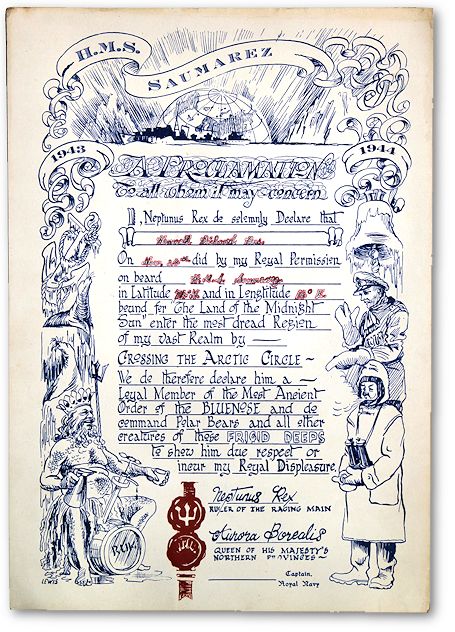 H.M.S.
SAUMAREZ
1943
1944
A PROCLAMATION
To all whom it may concern
I, Neptunus Rex do solemnly Declare that
On did by my Royal Permission
on board
in Latitude and in Longtitude
bound for The Land of the Midnight
Sun enter the most dread Region
of my vast Realm by —
CROSSING THE ARCTIC CIRCLE ~
We do therefore declare him a ~
Loyal Member of the Most Ancient
Order of the BLUENOSE and do
command Polar Bears and all other
creatures of these FRIGID DEEPS
to show him due respect or
incur my Royal Displeasure,
Neptunus Rex
RULER OF THE RAGING MAIN
Aurora Borealis
QUEEN OF HIS MAJESTY'S
NORTHERN PROVINCES ~
Captain,
Royal Navy